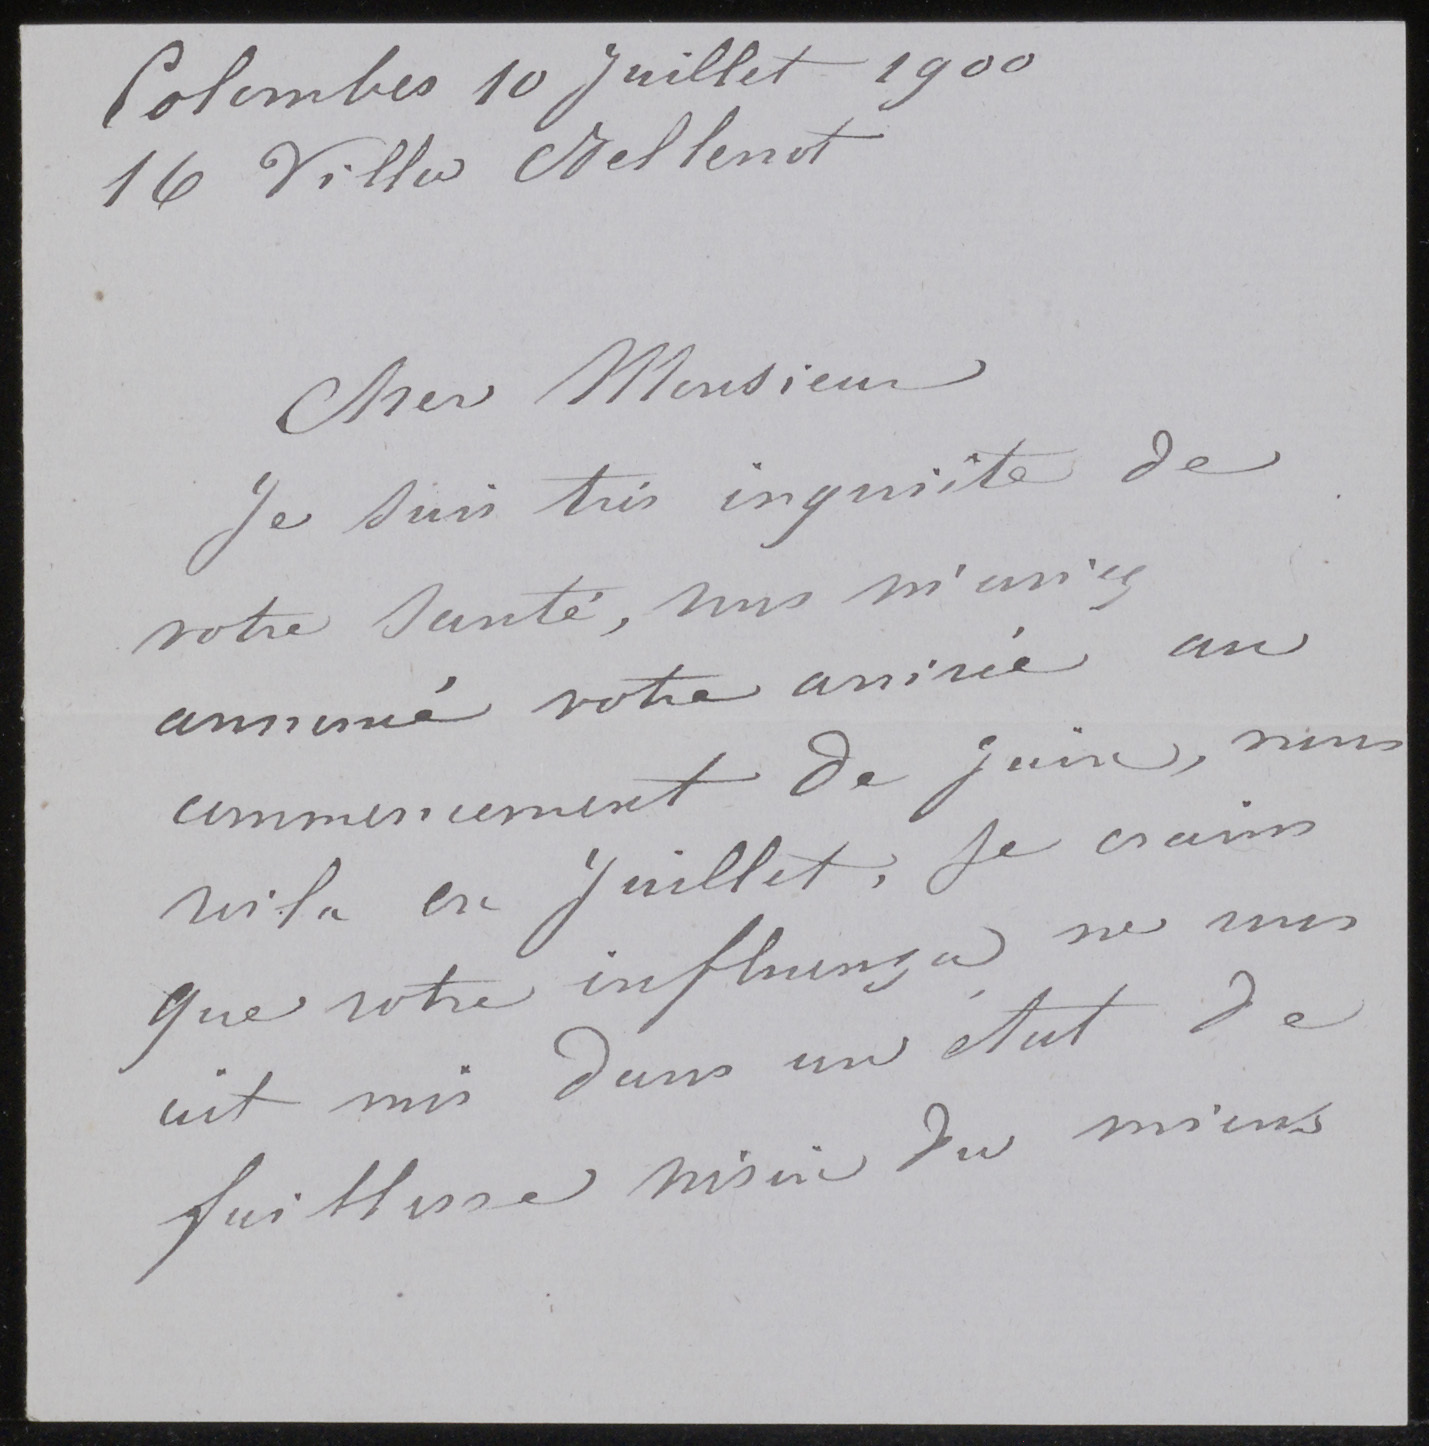 Colombes 10 Juillet 1900
16 Villa
Cher Monsieur
Je suis très inquiète de
votre santé, vous m'aviez
annoncé votre arrivée au
commencement de juin, nous
voila en Juillet, je crains
que votre influenza ne vous
ait mis dans un état de
faiblesse voisin du mien